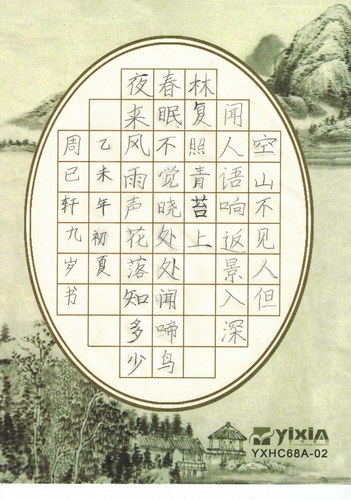 空山不见人但
闻人语响返景入深
林复照青苔上
春眠不觉晓处处闻啼鸟
夜来风雨声花落知多少
乙未年初夏
周已轩九岁书
YiXiA
YXHC68A-02